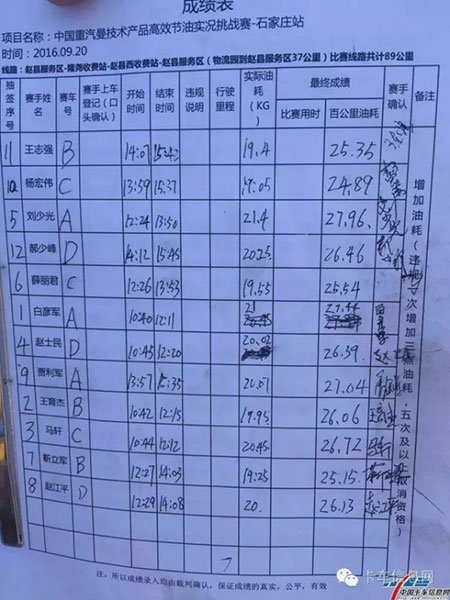 成绩表
项目名称：中国重汽曼技术产品高效节油实况挑战赛-石家庄站
时间：2016.09.20
线路：赵县服务区-隆尧收费站-赵县西收费站-赵县服务区（物流园到赵县服务区37公里）比赛线路共计89公里
抽签序号 赛手姓名 赛车号 赛手上车登记（口头确认） 开始时间 结束时间 违规说明 行驶里程 实际油耗（KG） 最终成绩 比赛用时 百公里油耗 赛手确认 备注
11 王志强 B 14:07 15:42 19.4 25.35
10 杨宏伟 C 13:59 15:37 19.05 24.89
5 刘少光 A 12:24 13:50 21.4 27.96
12 郝少峰 D 14:12 15:45 20.25 26.46
6 薛丽君 C 12:26 13:53 19.55 25.54
1 白彦军 A 10:40 12:11 21 27.44
4 赵士民 D 10:45 12:20 20.02 26.59
9 贾利军 A 13:57 15:35 20.07 27.04
2 王育杰 B 10:42 12:15 19.95 26.06
3 马轩 C 10:44 12:12 20.45 26.72
7 靳立军 B 12:27 14:03 19.25 25.15
8 赵江平 D 12:29 14:08 20. 26.13 赵江平
增加油耗（违规一次增加三点油耗，五次及以上取消资格）
注，所以成绩录入均由裁判确认，保证成绩的真实，公平，有效
卡车信息网
中国卡车信息网